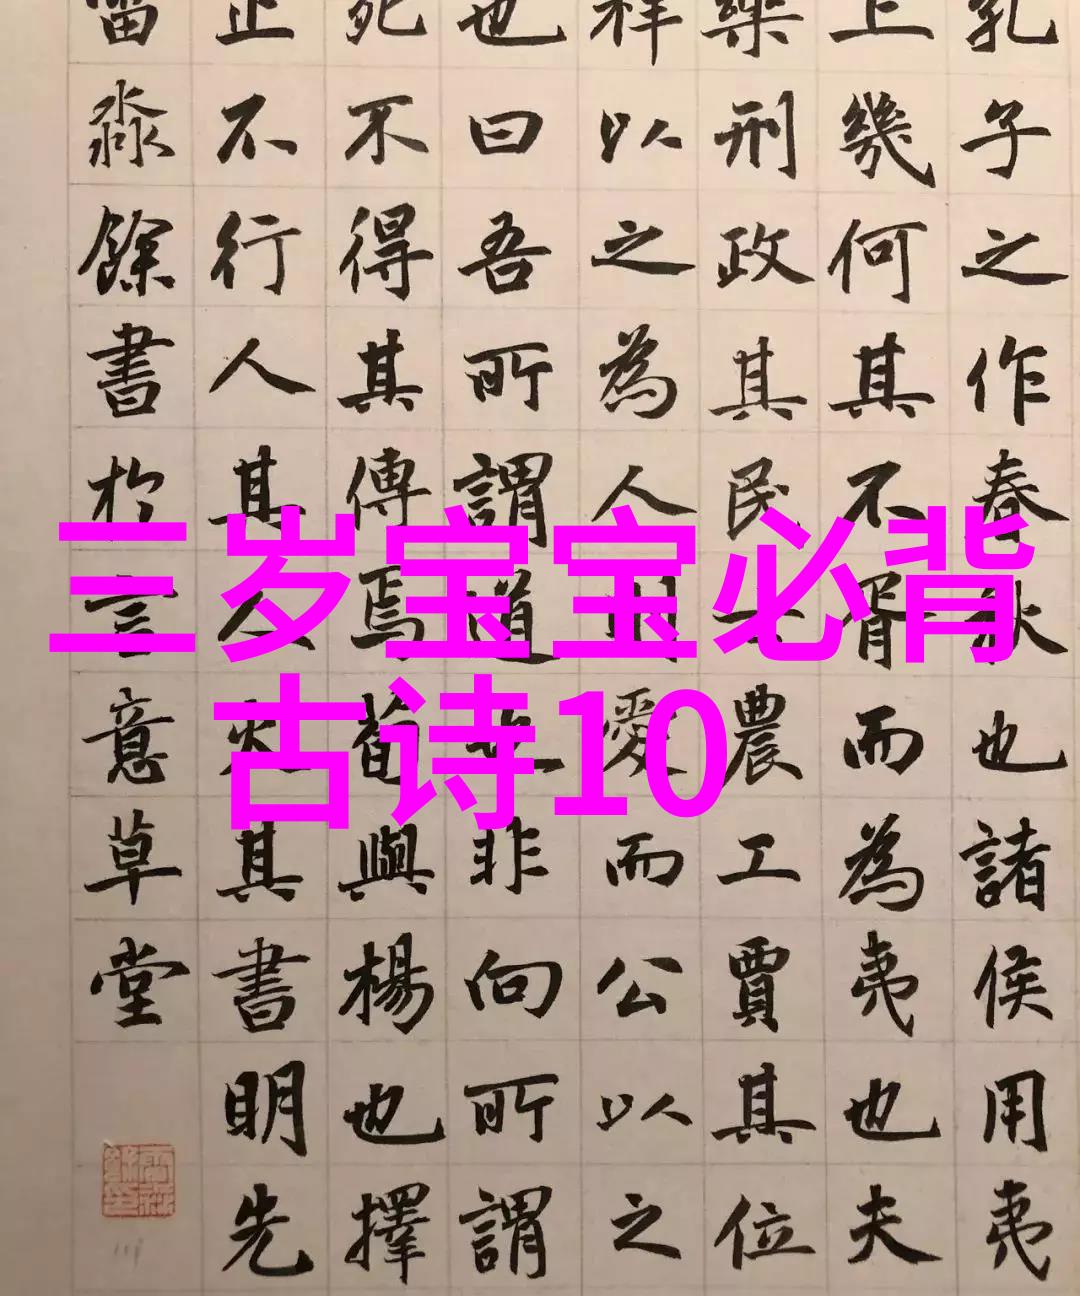 孔子之作春秋也諸侯用夷
上幾何其不胥而為夷也夫
樂刑政其民士農工賈其位
祥以之為人則愛而公以之
也曰吾所謂道也非向所謂
死不得其傳焉荀與楊也擇
止不行人其人火其書明先
淼餘書於言意草堂
三岁宝宝必背
古诗10